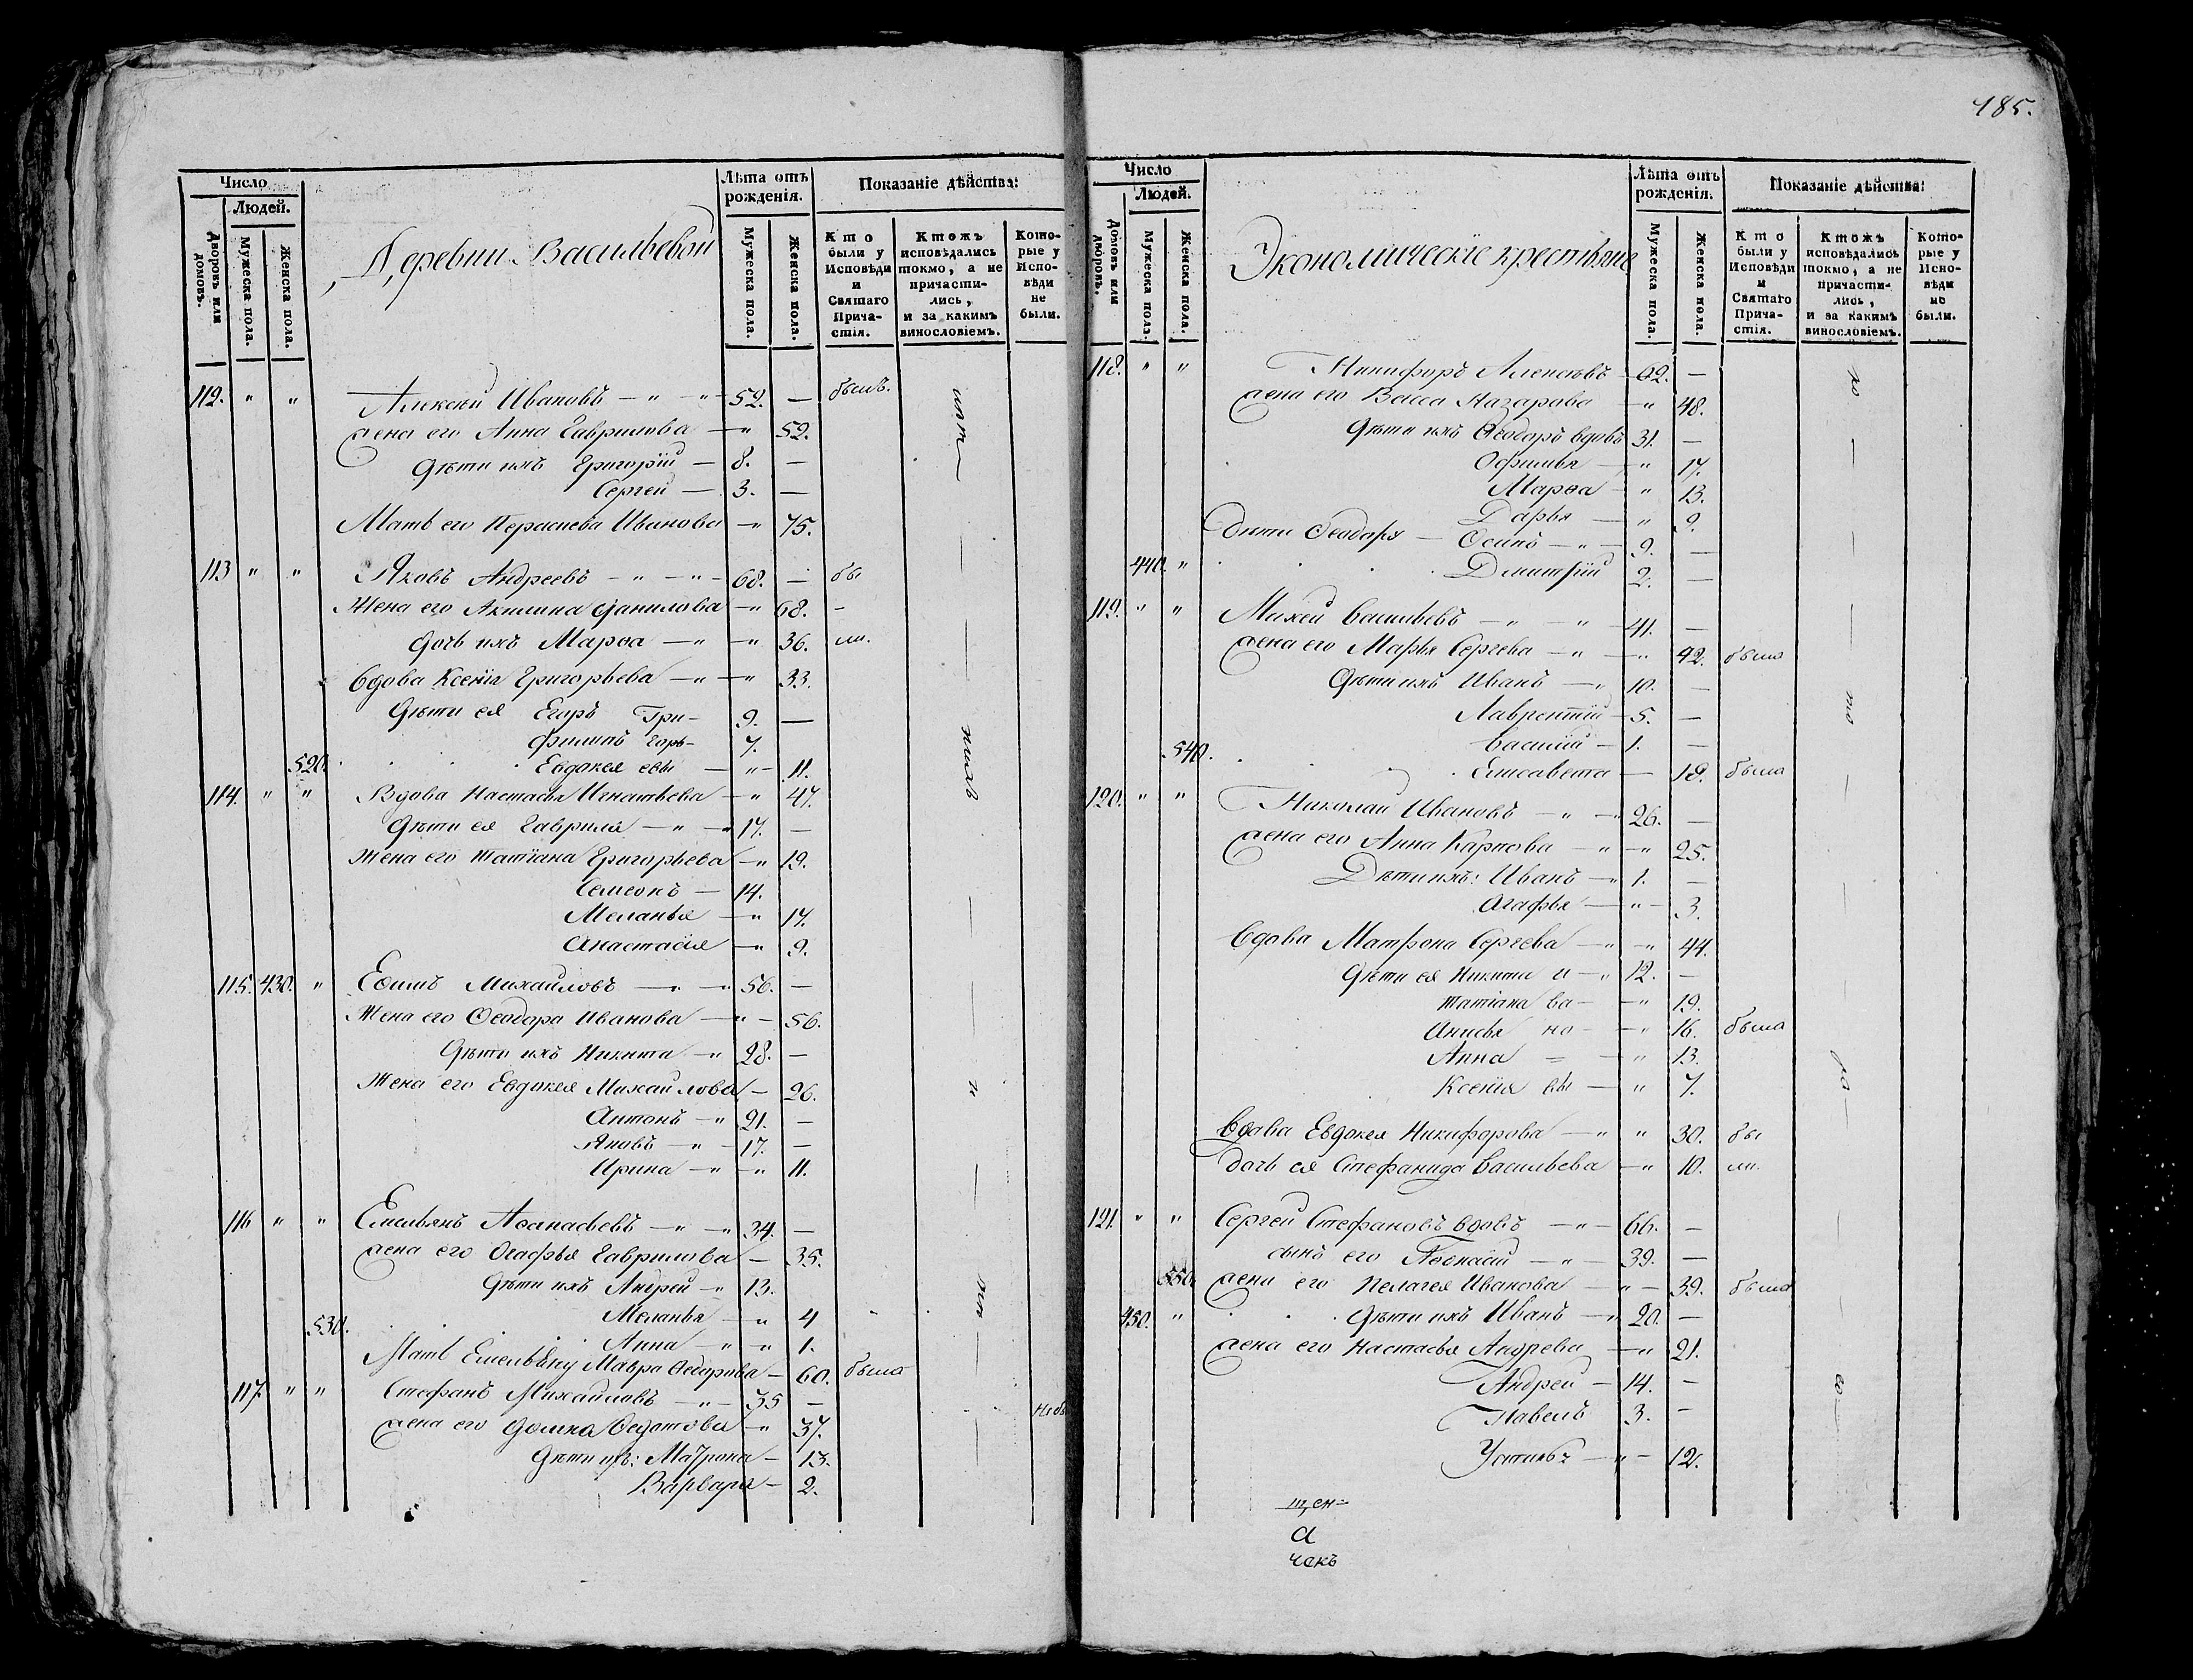 185.
Число
Людей.
Дворовъ или домовъ.
Мужеска пола.
Женска пола.
Деревни Васильевой
Лѣта отъ рожденія.
Мужеска пола.
Женска пола.
Показаніе дѣйства:
Кто были у Исповѣди и Святаго Причастія.
Ктожъ исповѣдались токмо, а не причастились, и за какимъ винословіемъ.
Которые у Исповѣди не были.
112. " " Алексѣй Ивановъ — " — " — 52. — былъ.
жена его Анна Гаврилова — " 52.
Дѣти ихъ Григорій — 8. —
Сергей — 3. —
Мать его Парасковья Иванова — " 75.
113 " " Яковъ Андреевъ — " — " — 68. — бы
Жена его Акилина Данилова — " 68. —
Дочь ихъ Марѳа — " — " 36. ли.
Вдова Ксенія Григорьева — " — " 33.
Дѣти ея Егоръ Гри- 9. —
Филипъ горь- 7.
520. Евдокея евы — " — 11.
114. " " Вдова Настасья Игнатьева — " 47.
Дѣти ея Гаврила — " — " 17. —
Жена его Татіана Григорьева — " 19.
Семеонъ — 14.
Меланья — " 17.
Анастасія — " 9.
115. 430. " Ефимъ Михайловъ — " — " 56. —
Жена его Ѳеодора Иванова — " — 56.
Дѣти ихъ Никита — " 28. —
Жена его Евдокея Михайлова — 26.
Антонъ — " 21. —
Яковъ — " — 17. —
Ирина — " — " 11.
116 " " Емельянъ Аѳанасьевъ — " — " 34. —
жена его Агафья Гаврилова — 35.
Дѣти ихъ Андрей — " 13.
Меланья — " 4
530. Анна — " — " 1.
Мать Емельяну Мавра Ѳедорова — 60. была
117. " " Стефанъ Михайловъ — " — 35 —
жена его Домна Ѳедотова — " 37.
Дѣти ихъ: Матрона — 13.
Варвара — 2.
Число
Людей.
Домовъ или дворовъ.
Мужеска пола.
Женска пола.
Экономическіе крестьяне
Лѣта отъ рожденія.
Мужеска пола.
Женска пола.
Показаніе дѣйства:
Кто были у Исповѣди и Святаго Причастія.
Ктожъ исповѣдались токмо, а не причастились, и за какимъ винословіемъ.
Которые у Исповѣди не были.
118. " " Никифоръ Алексѣевъ — 62. —
жена его Васса Назарова — " 48.
Дѣти ихъ Ѳеодоръ вдовъ 31. —
Офимья — " 17.
Марѳа — " 13.
Дарья — " 9.
Дѣти Ѳеодора — Осипъ — " — 9. —
440. " Дмитрій 2. —
119. " " Михей Васильевъ — " — " — 41. —
жена его Марья Сергева — " — " 42. была
Дѣти ихъ Иванъ — " 10. —
Лаврентій — 5. —
Василій — 1. —
540. Елисавета — 18. была
120. " " Николай Ивановъ — " — " 26. —
жена его Анна Карпова — " — " 25.
Дѣти ихъ: Иванъ — " 1. —
Агафья — " — 3.
Вдова Матрона Сергева — " — " 44.
Дѣти ея Никита и — " 12. —
Татіана ва — — " 19.
Анисья но — — " 16. была
Анна = — " 13.
Ксенія вы — " 7.
Вдова Евдокея Никифорова — " " 30. бы
дочь ея Стефанида Васильева — " 10. ли.
121. " " Сергей Стефановъ вдовъ — " — 66. —
сынъ его Аѳонасій — " — 39. —
550. жена его Пелагея Иванова — " — 39. была
450. " Дѣти ихъ Иванъ — " 20. —
жена его Настасья Андрева — " 21.
Андрей — 14. —
Павелъ 3. —
Устинья — " — 12.
щен=
а
чекъ